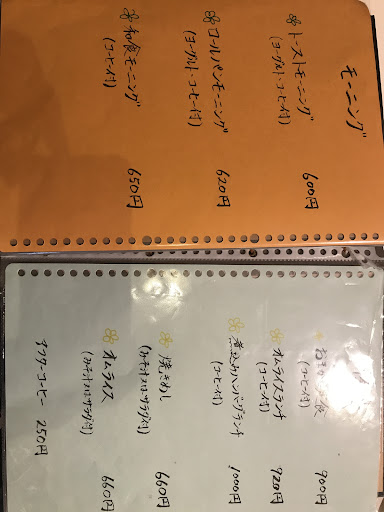 モーニング
トーストモーニング
(ヨーグルト・コーヒー付)
600円
ロールパンモーニング
(ヨーグルト・コーヒー付)
620円
和食モーニング
(コーヒー付)
650円
(コーヒー付)
900円
オムライスランチ
(コーヒー付)
920円
煮込みハンバーグランチ
(コーヒー付)
1000円
焼きめし
(みそ汁又はサラダ付)
660円
オムライス
(みそ汁又はサラダ付)
660円
アフターコーヒー 250円